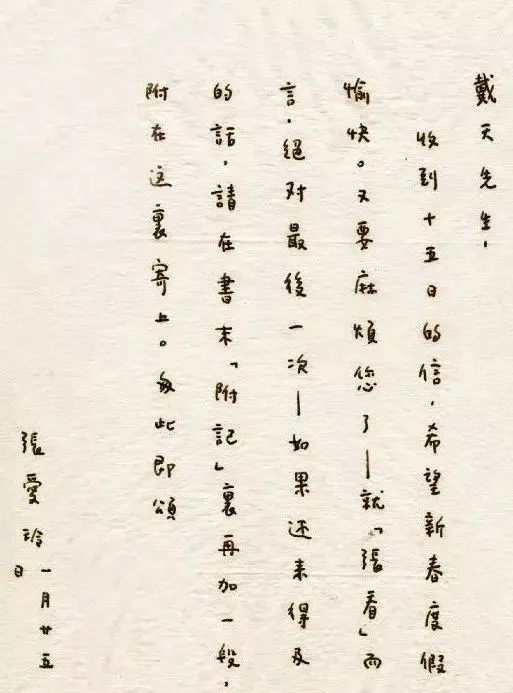 戴天先生，
收到十五日的信，希望新春度假
愉快。又要麻煩您了—就「張看」而
言，絕对最後一次—如果还來得及
的話，請在書末「附記」裏再加一段，
附在这裏寄上。匆此即頌
張愛玲 一月廿五
日